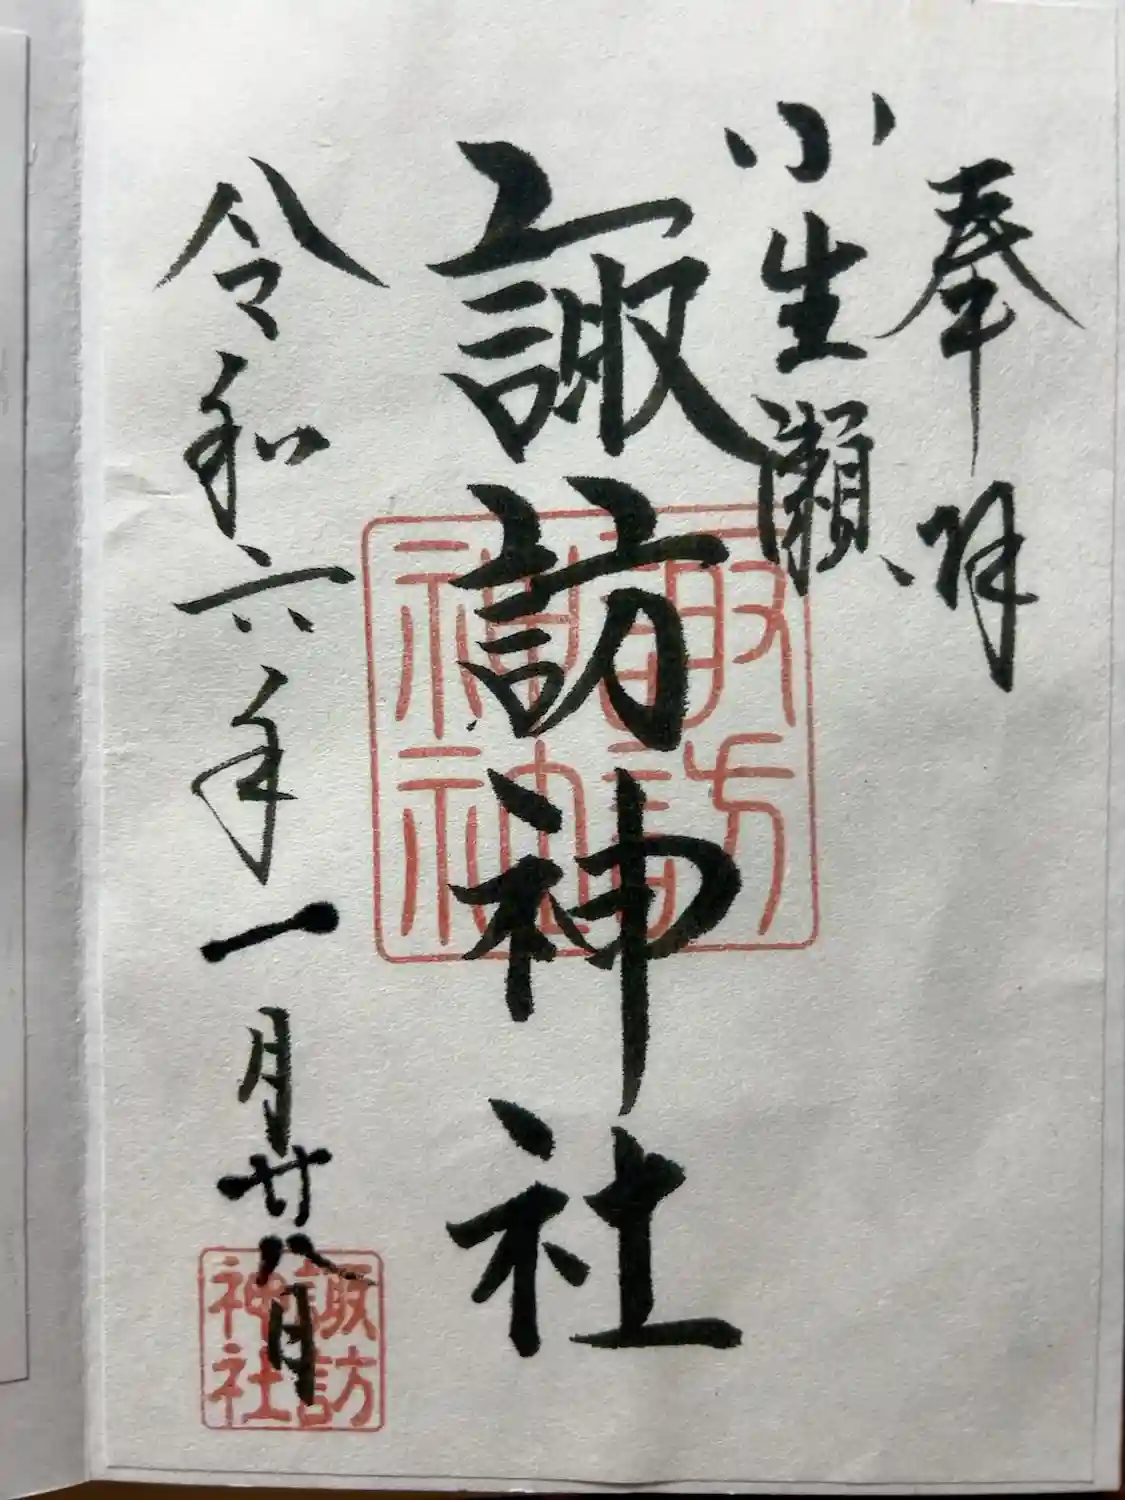 奉拝
小生瀬
諏訪神社
令和六年一月廿八日
諏訪
神社
諏訪
神社